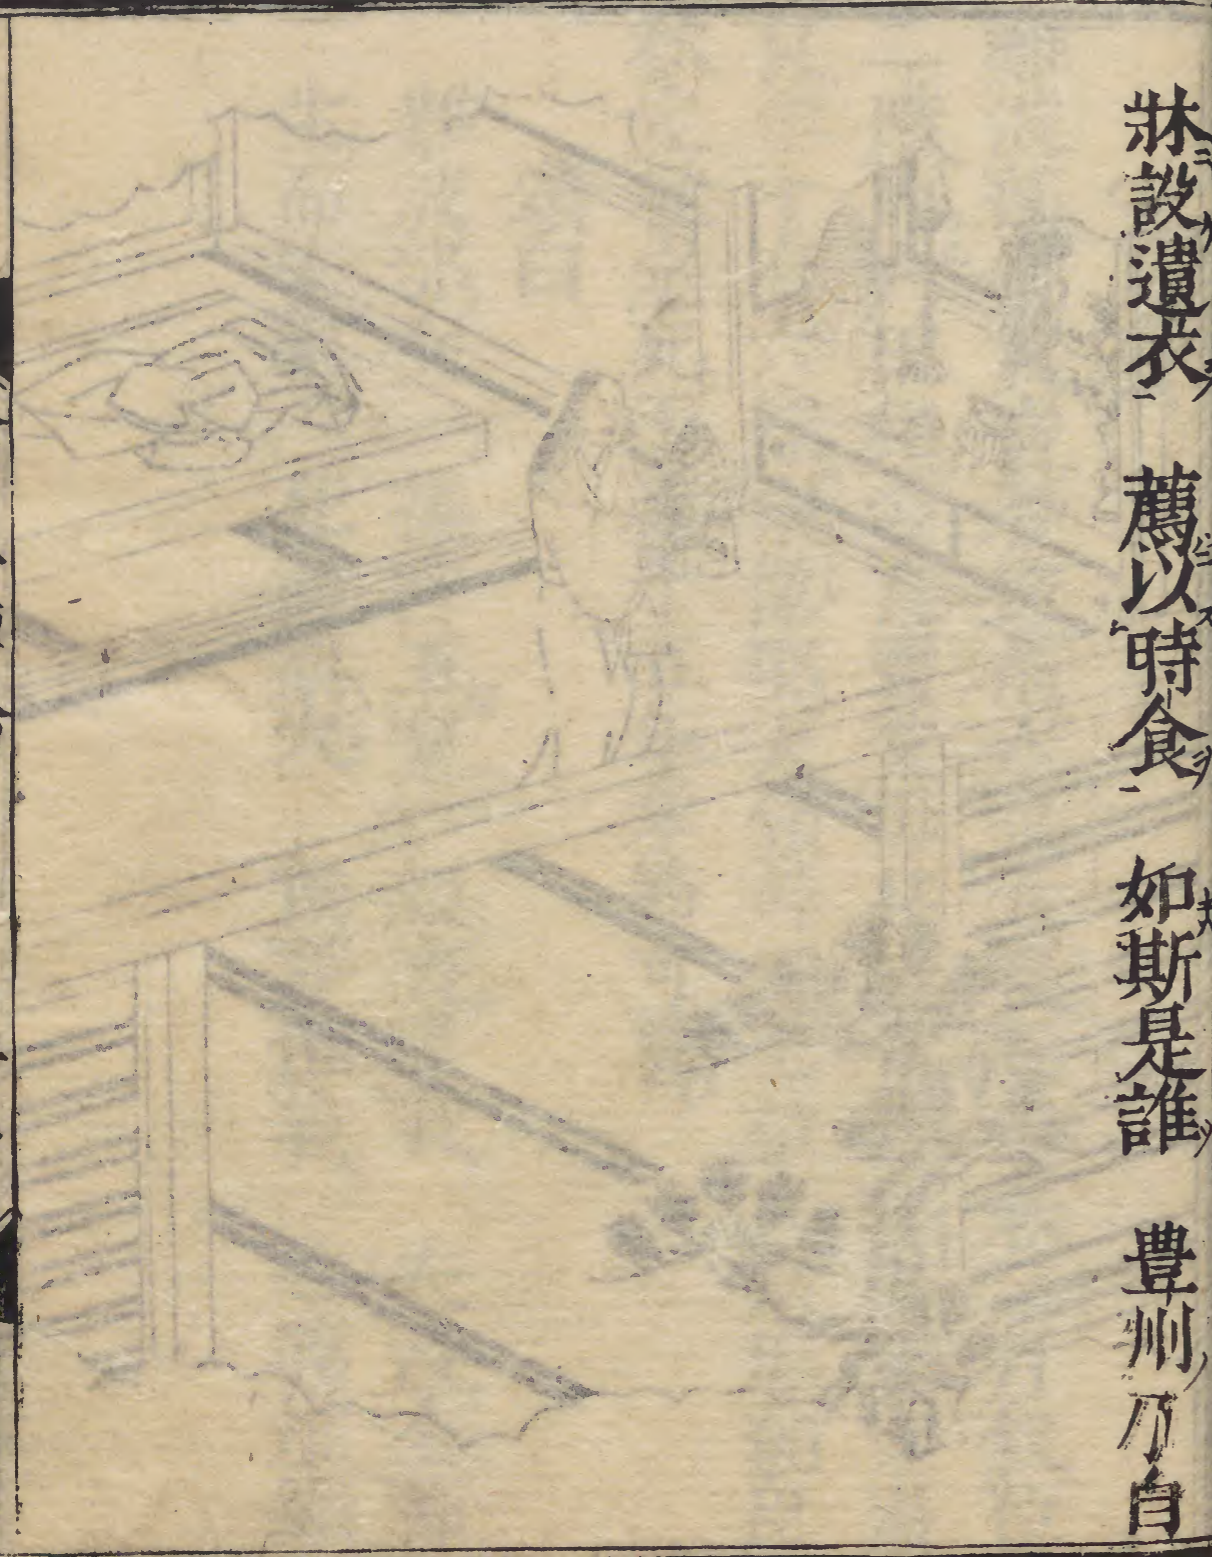 牀設遺衣 薦以時食 如斯是誰 豊州乃自